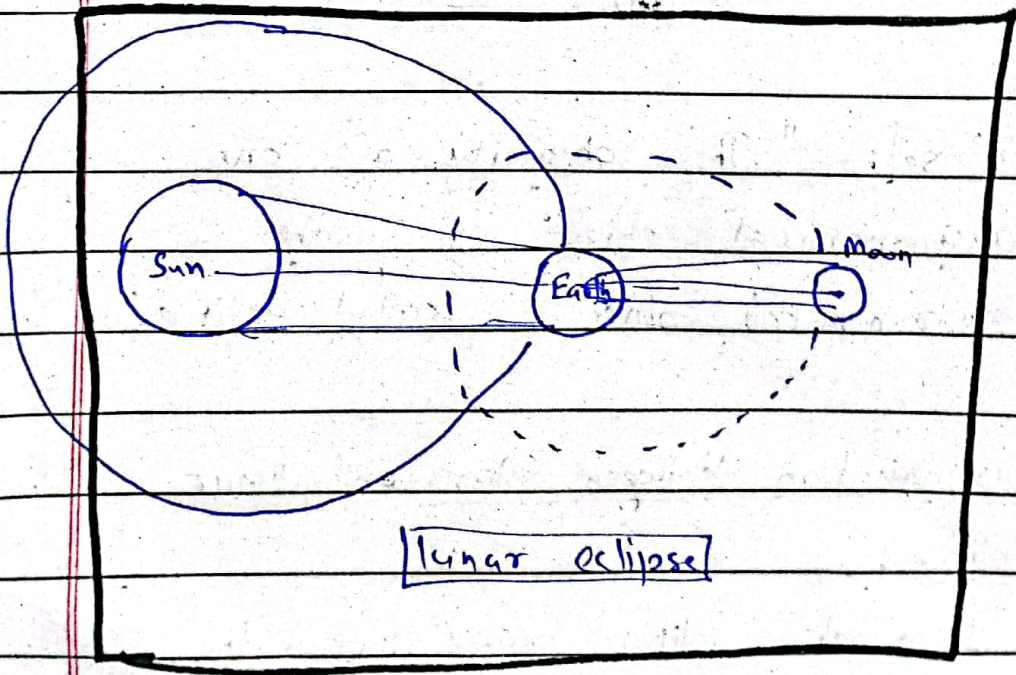 Sun
Earth
Moon
lunar eclipse